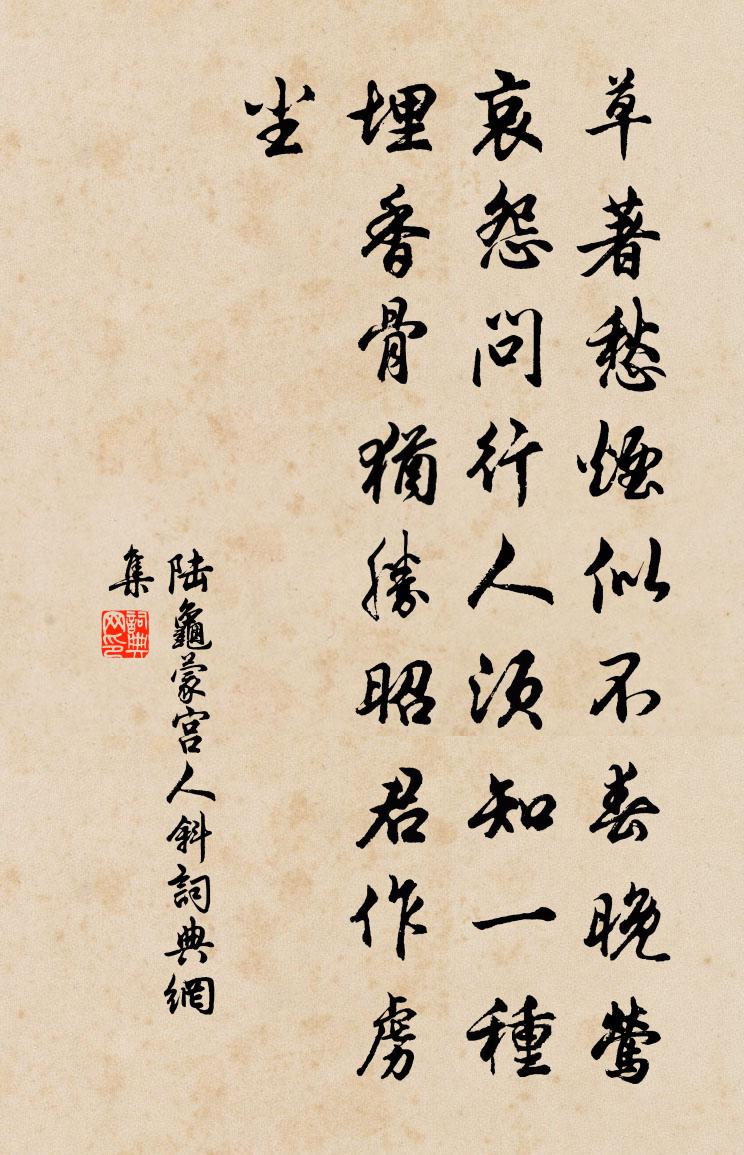 草著愁煙似不春晚鶯
哀怨問行人須知一種
埋香骨猶勝昭君作虜
尘
陸龜蒙宮人斜詞典網
集
詞典
网印